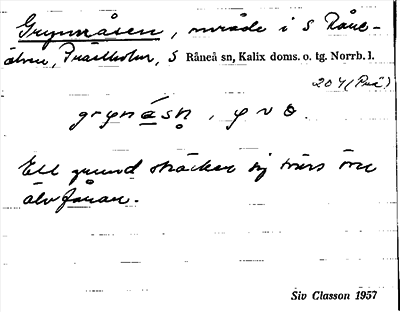 Grynnåsen, område i S Råne-
älven, Prästholm, S Råneå sn, Kalix doms. o. tg. Norrb. l.
204 (Rå)
grynåsn,
Ett grund sträcker sig tvärs över
älvfåran.
Siv Classon 1957